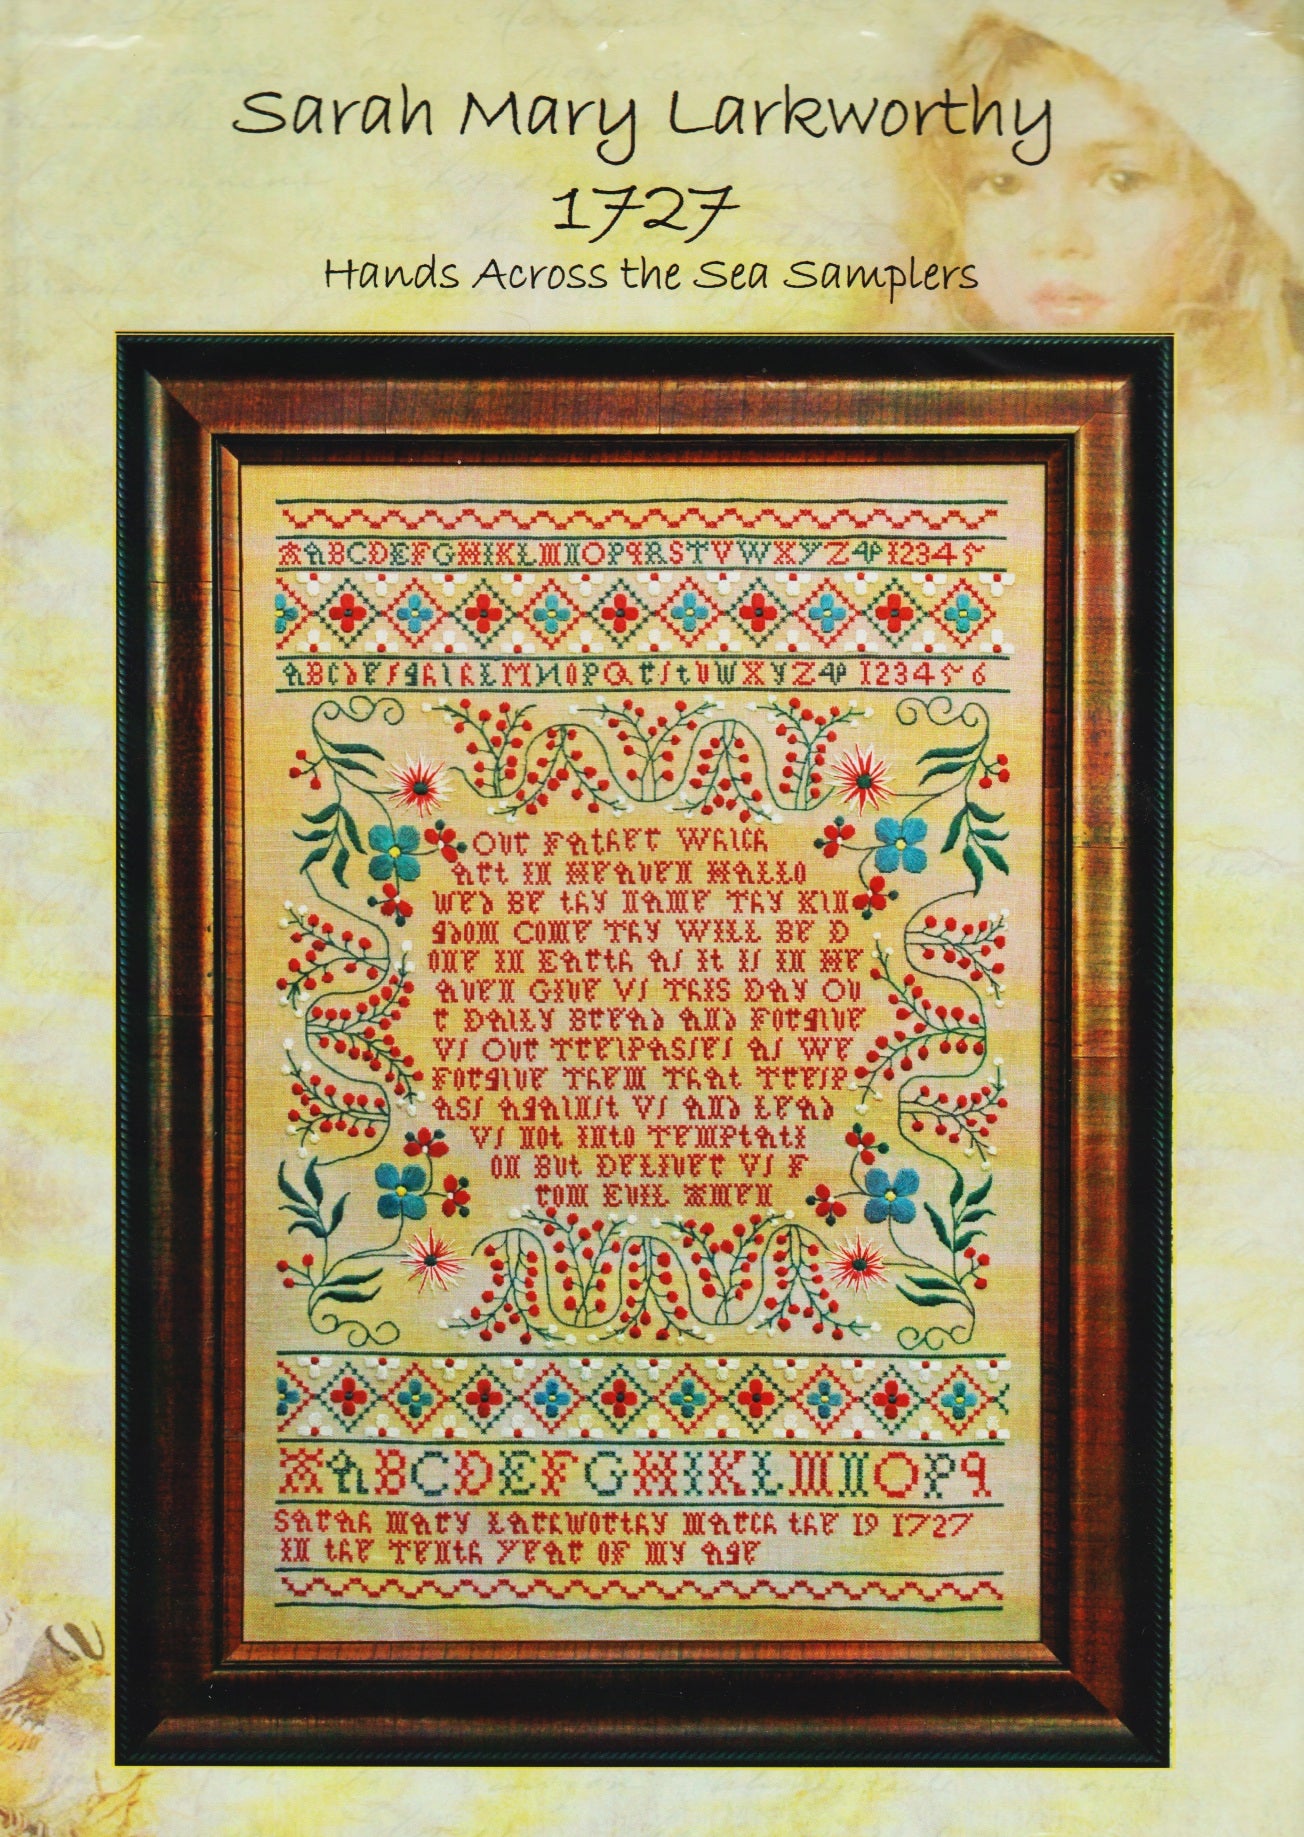 Sarah Mary Larkworthy
1727
Hands Across the Sea Samplers
AABCDEFGHIKLMNOPqRSTVWXYZ& 12345
ABCdefghikLMNOPQrstuWXYZ& 123456
Our Father Which
Art In Heaven Hallo
Wed Be thy Name Thy Kin
gdom Come Thy Will Be D
one In Earth As It Is In He
Aven Give Vs This Day Ou
r Daily Bread And Forgive
Vs Our Trespasses As We
Forgive Them That Tresp
Ass Against Vs And Lead
Vs Not Into Temptati
on But Deliver Vs F
rom Evil Amen
AABCDEFGHIKLMNOPq
Sarah Mary Larkworthy March the 19 1727
In the Tenth Year of my Age